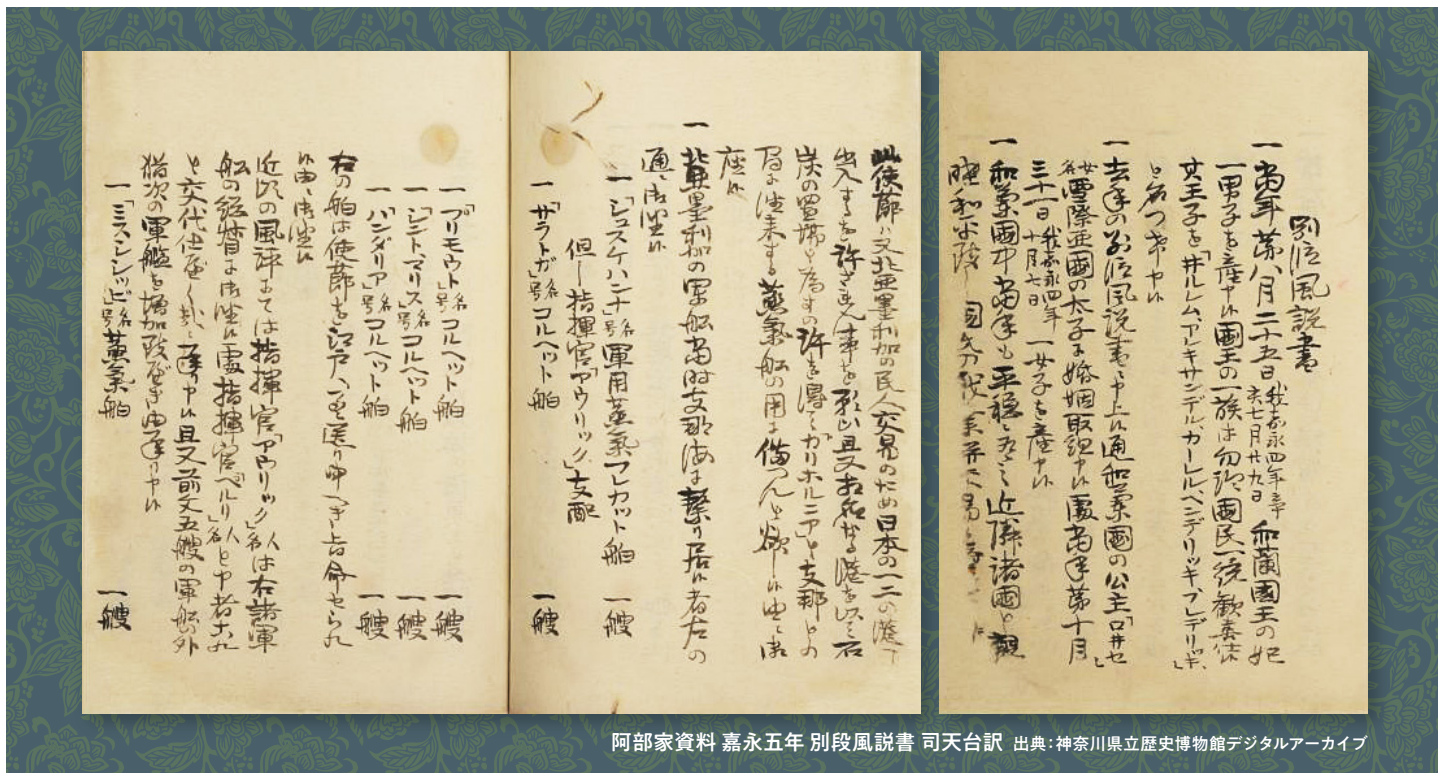 別段風説書
一当年第八月二十五日我嘉永四年辛亥七月廿九日和蘭國王の妃
一男子を産申候國王の一族は勿論國民一統歓喜仕
其王子を「井ルレム、アレキサンデル、カーレルヘンデリッキ、フレデリッキ」
と名つけ申候
一去年の別段風説書中申上候通和蘭國の公主「ロ井セ」
女名雪際亜國の太子に婚姻取組申候處当年第十月
三十一日我嘉永四年十月七日一女子を産申候
一和蘭國中当年も平穏にて近隣諸國と親
睦和平
此使節は又北亜墨利加の民人交易のため日本の一二の港に
出入するを許さ連ん事を願ひ且又相応なる港を以て石
炭の置場と為すの許を得て「カリホルニア」と支那との
間に往来する蒸氣船の用に備へんと欲し候由に御
座候
一北亜墨利加の軍船当時支那海に繋り居候者左の
通に御坐候
一「シュスケハンナ」号名軍用蒸氣フレカット舶 一艘
但し指揮官「アウリック」支配
一「サラトガ」号名コルヘット舶 一艘
一「プリモウト」号名コルヘット舶 一艘
一「シント、マリス」号名コルヘット舶 一艘
一「ハンダリア」号名コルヘット舶 一艘
右の舶は使節を江戸へ差送り申へき旨命せられ
候由に御坐候
近頃の風評にては指揮官「アウリック」人名は右諸軍
船の総督に御坐候處指揮官「ペルリ」人名と申者これ
と交代仕 且又前文五艘の軍船の外
猶次の軍艦を増加致すへき由 申候
一「ミスシシッピ」号名蒸氣舶 一艘
阿部家資料 嘉永五年 別段風説書 司天台訳 出典:神奈川県立歴史博物館デジタルアーカイブ